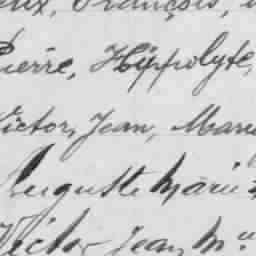 François,
Pierre, Hippolyte,
Victor, Jean, Marie
Auguste Marie
Victor Jean M.